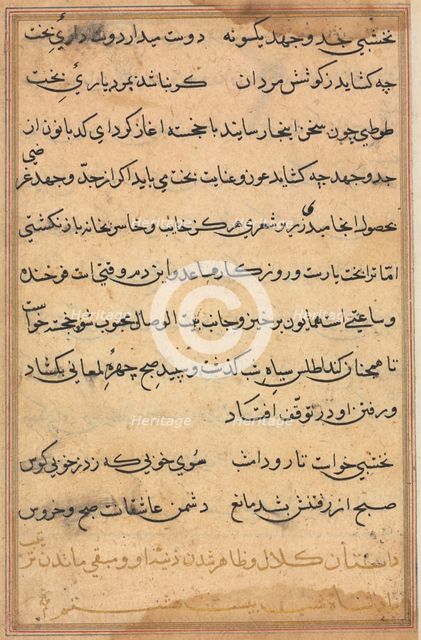 نخشبی جد و جهد یکسونه دوست میدار دوست داری بخت
چه کشاید ز کوشش مردان کر نباشد بمرد یاری بخت
طوطی چون سخن اینجا رسانید با خجسته آغاز کرد ای کدبانو از
جد و جهد چه کشاید عون و عنایت بخت می باید اکر از جد و جهد غرضی
بحصول انجامیدی زیر و شهری هرکز خایب و خاسر بخانه باز نکشتی
اما ترا بخت یارست و روزکار مساعد و این دم وقتی است فرخنده
و ساعتی است همایون برخیز و جانب بیت الوصال محبوب شو خجسته خواست
تا همچنان کند اطلس سیاه شب کذشت و سپید صبح چهره لمعانی بکشاد
و رفتن او در توقف افتاد
نخشبی خواست تا رود امشب سوی خوبی که زد ز خوبی کوس
صبح از رفتنش بشد مانع دشمن عاشقانست صبح و خروس
داستان کلال و ظاهر شدن او و مبقی ماندن
پادشاه شب بیست